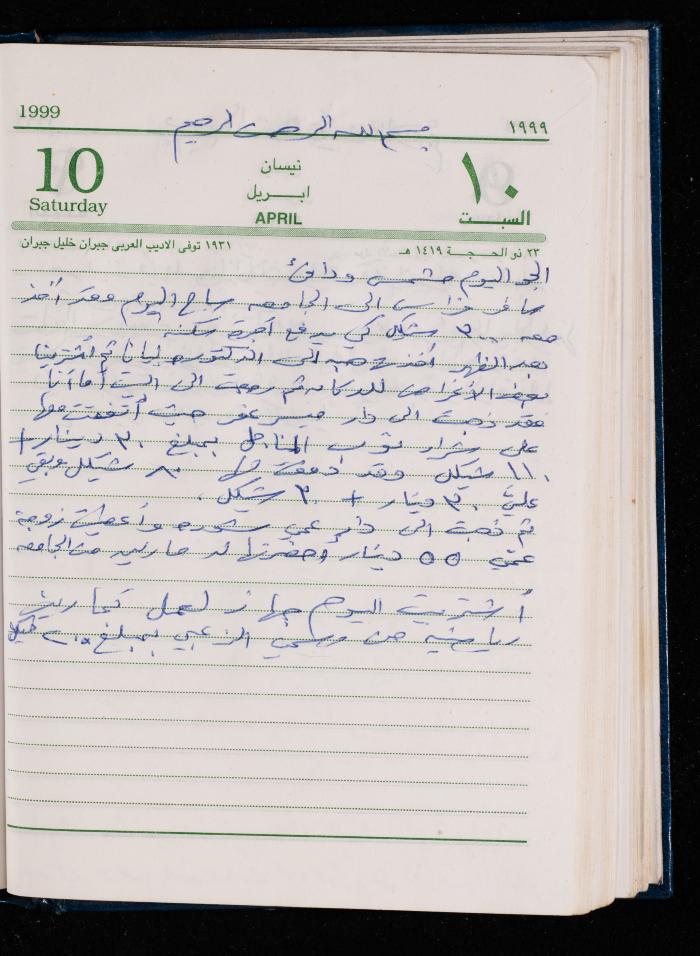 1999
١٩٩٩
بسم الله الرحمن الرحيم
10
Saturday
نيسان
ابـريـل
APRIL
١٠
السبت
٢٣ ذو الحجـة ١٤١٩ هـ
١٩٣١ توفى الاديب العربى جبران خليل جبران
الجو اليوم مشمس ودافئ
سافر فراس الى الجامعه صباح اليوم وقد أخذ
معه ٣٠٠ شيكل كي يدفع أجرة سكنه
بعد الظهر الى الدكتوره ثم أشترينا
بعض الأغراض للدكانه ثم رجعت الى البيت أما أنا
فقد ذهبت الى دار حيث أتفقت معها
على شراء ثوب بمبلغ ٣٠ دينار +
١١٠ شيكل وقد دفعت لها ٨٠ شيكل وبقي
عليَّ ٣٠ دينار + ٣٠ شيكل.
ثم ذهبت الى دار عمي وأعطيت زوجة
عمي ٥٥ دينار أحضرتها لد من الجامعه
أشتريت اليوم جهاز لعمل تمارين
رياضيه من الزعبي بمبلغ شيكل